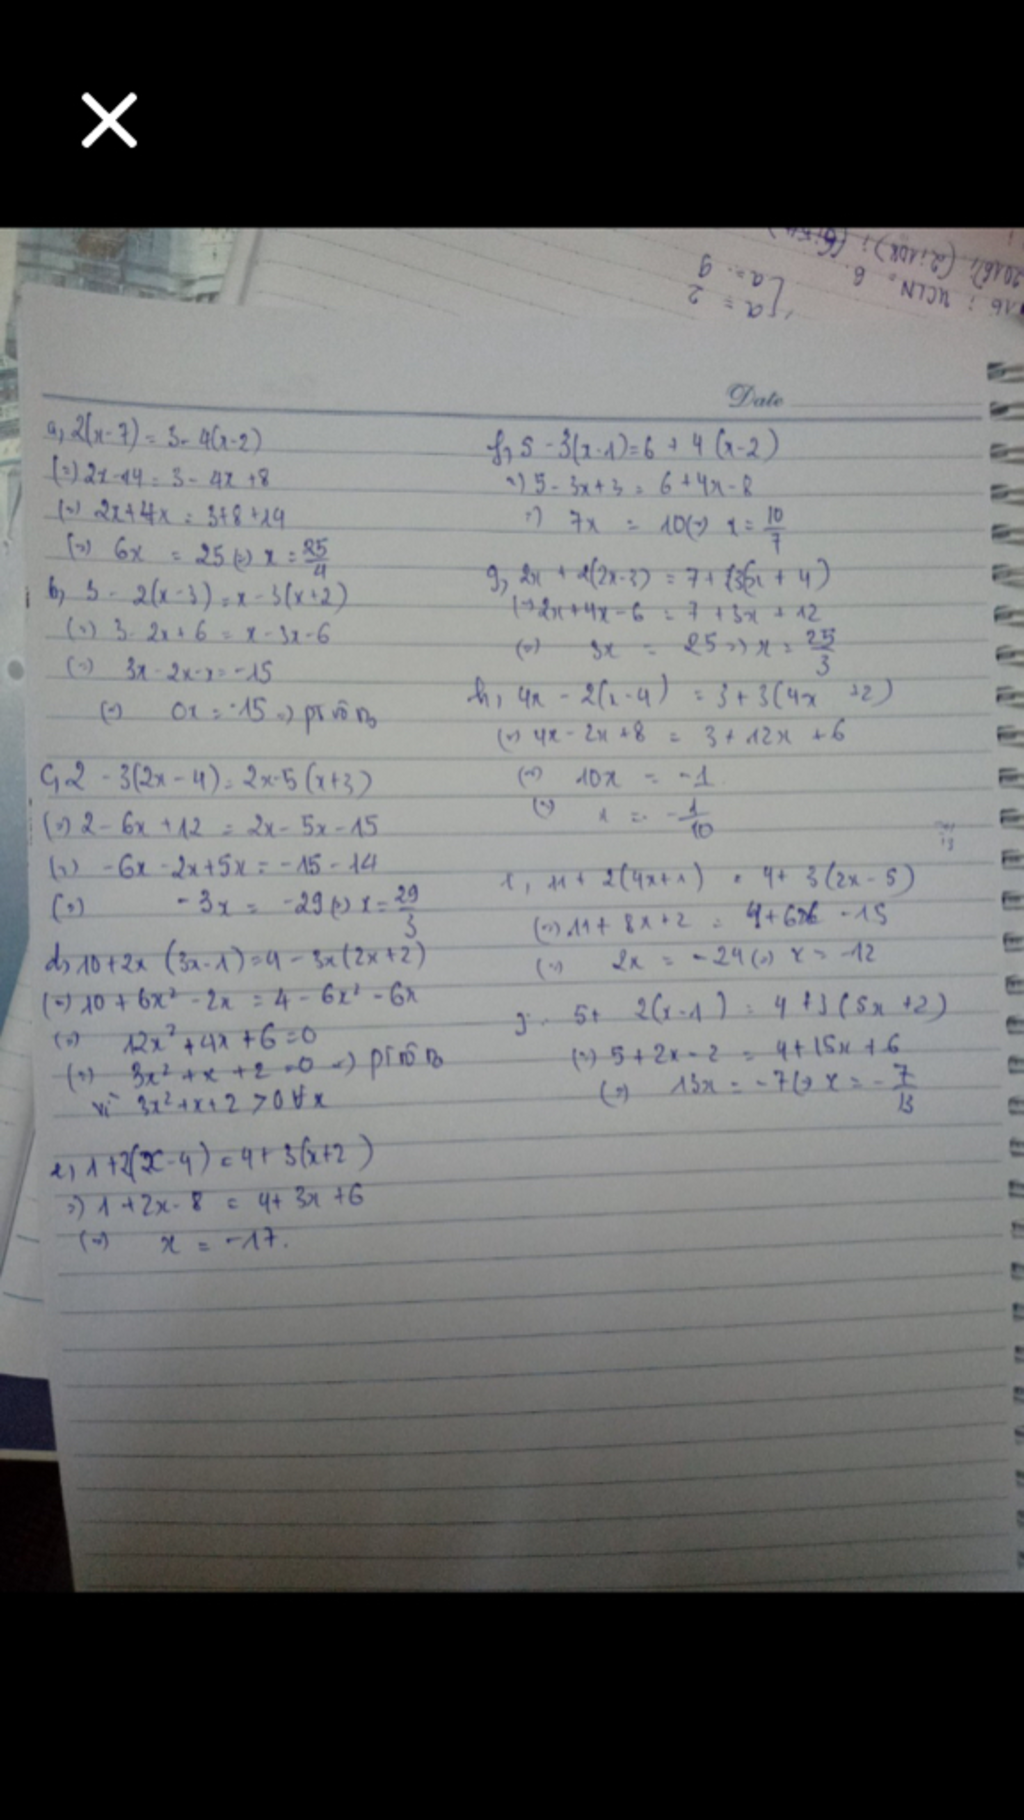 Date
a, 2(x-7) = 3-4(x-2)
(=) 2x-14 = 3-4x+8
(=) 2x+4x = 3+8+14
(=) 6x = 25 (=) x = 25/4
b, 3 - 2(x-3) = x-3(x+2)
(=) 3-2x+6 = x-3x-6
(=) 3x-2x-x = -15
(=) 0x = -15 =) pt vô no
c, 2 - 3(2x-4) = 2x-5(x+3)
(=) 2-6x+12 = 2x-5x-15
(=) -6x-2x+5x = -15-14
(=) -3x = -29 (=) x = 29/3
d, 10+2x(3x-1) = 4-3x(2x+2)
(=) 10+6x²-2x = 4-6x²-6x
(=) 12x²+4x+6=0
(=) 3x²+x+2=0 =) pt vô no
vì 3x²+x+2 >0 ∀x
e, 1+2(x-4) = 4+3(x+2)
=) 1+2x-8 = 4+3x+6
(=) x = -17.
f, 5-3(x-1)=6+4(x-2)
=) 5-3x+3 = 6+4x-8
=) 7x = 10 (=) x = 10/7
g, 2x+2(2x-3) = 7+3(x+4)
(=) 2x+4x-6 = 7+3x+12
(=) 3x = 25 =) x = 25/3
h, 4x-2(x-4) = 3+3(4x+2)
(=) 4x-2x+8 = 3+12x+6
(=) 10x = -1
(=) x = -1/10
i, 11+2(4x+1) = 4+3(2x-5)
(=) 11+8x+2 = 4+6x-15
(=) 2x = -24 (=) x = -12
j. 5+2(x-1) = 4+3(5x+2)
(=) 5+2x-2 = 4+15x+6
(=) 13x = -7 (=) x = -7/13